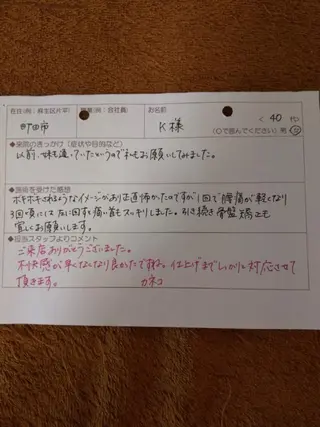 在住(例:麻生区片平) 職業(例:会社員) お名前 < 40 代>
町田市 K様 (○で囲んでください) 男 女
◆来院のきっかけ(症状や目的など)
以前、妹も通っていたというので私もお願いしてみました。
◆施術を受けた感想
ボキボキされるようなイメージがあり正直怖かったのですが1回で腰痛が軽くなり
3回頃には左に回すと痛い首もスッキリしました。引き続き骨盤矯正も
宜しくお願いします。
◆担当スタッフよりコメント
ご来店ありがとうございました。
不快感が早くなくなり良かったですね。仕上げまでしっかりと対応させて
頂きます。 カネコ